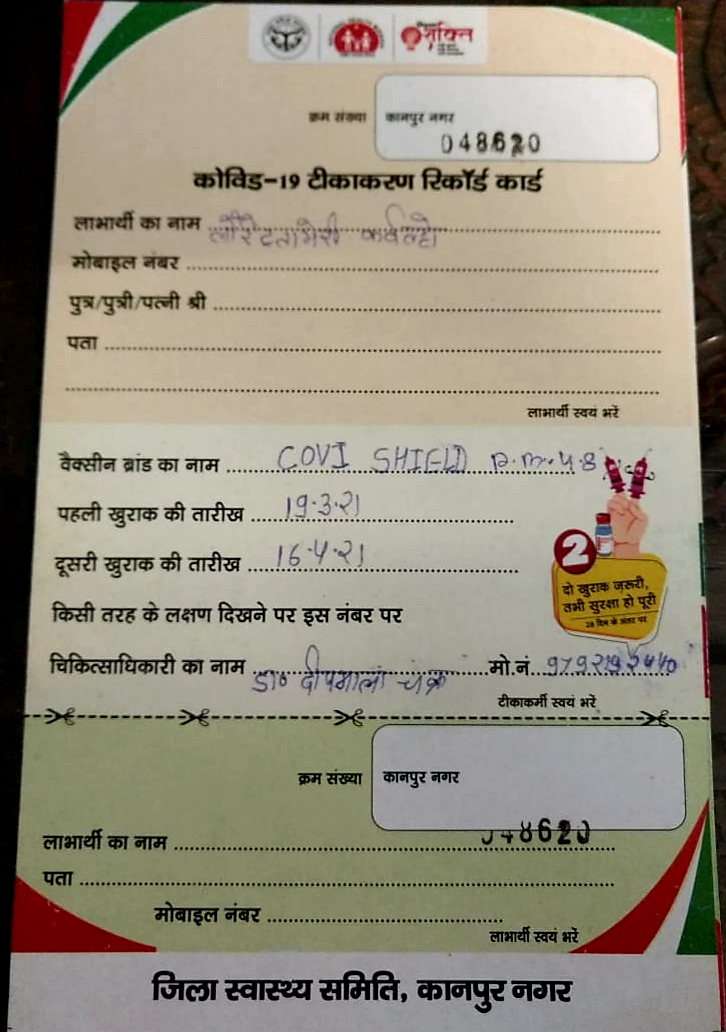 शक्ति
क्रम संख्या कानपुर नगर
048620
कोविड-19 टीकाकरण रिकॉर्ड कार्ड
लाभार्थी का नाम लौरेटतामेरी कर्वल्हो
मोबाइल नंबर
पुत्र/पुत्री/पत्नी श्री
पता
लाभार्थी स्वयं भरें
वैक्सीन ब्रांड का नाम COVI SHIELD
पहली खुराक की तारीख 19.3.21
दूसरी खुराक की तारीख 16.4.21
2
दो खुराक ज़रूरी,
तभी सुरक्षा हो पूरी
28 दिन के अंतर पर
किसी तरह के लक्षण दिखने पर इस नंबर पर
चिकित्साधिकारी का नाम डा० दीपमाला चक्र मो.नं.
टीकाकर्मी स्वयं भरें
क्रम संख्या कानपुर नगर
048620
लाभार्थी का नाम
पता
मोबाइल नंबर
लाभार्थी स्वयं भरें
जिला स्वास्थ्य समिति, कानपुर नगर